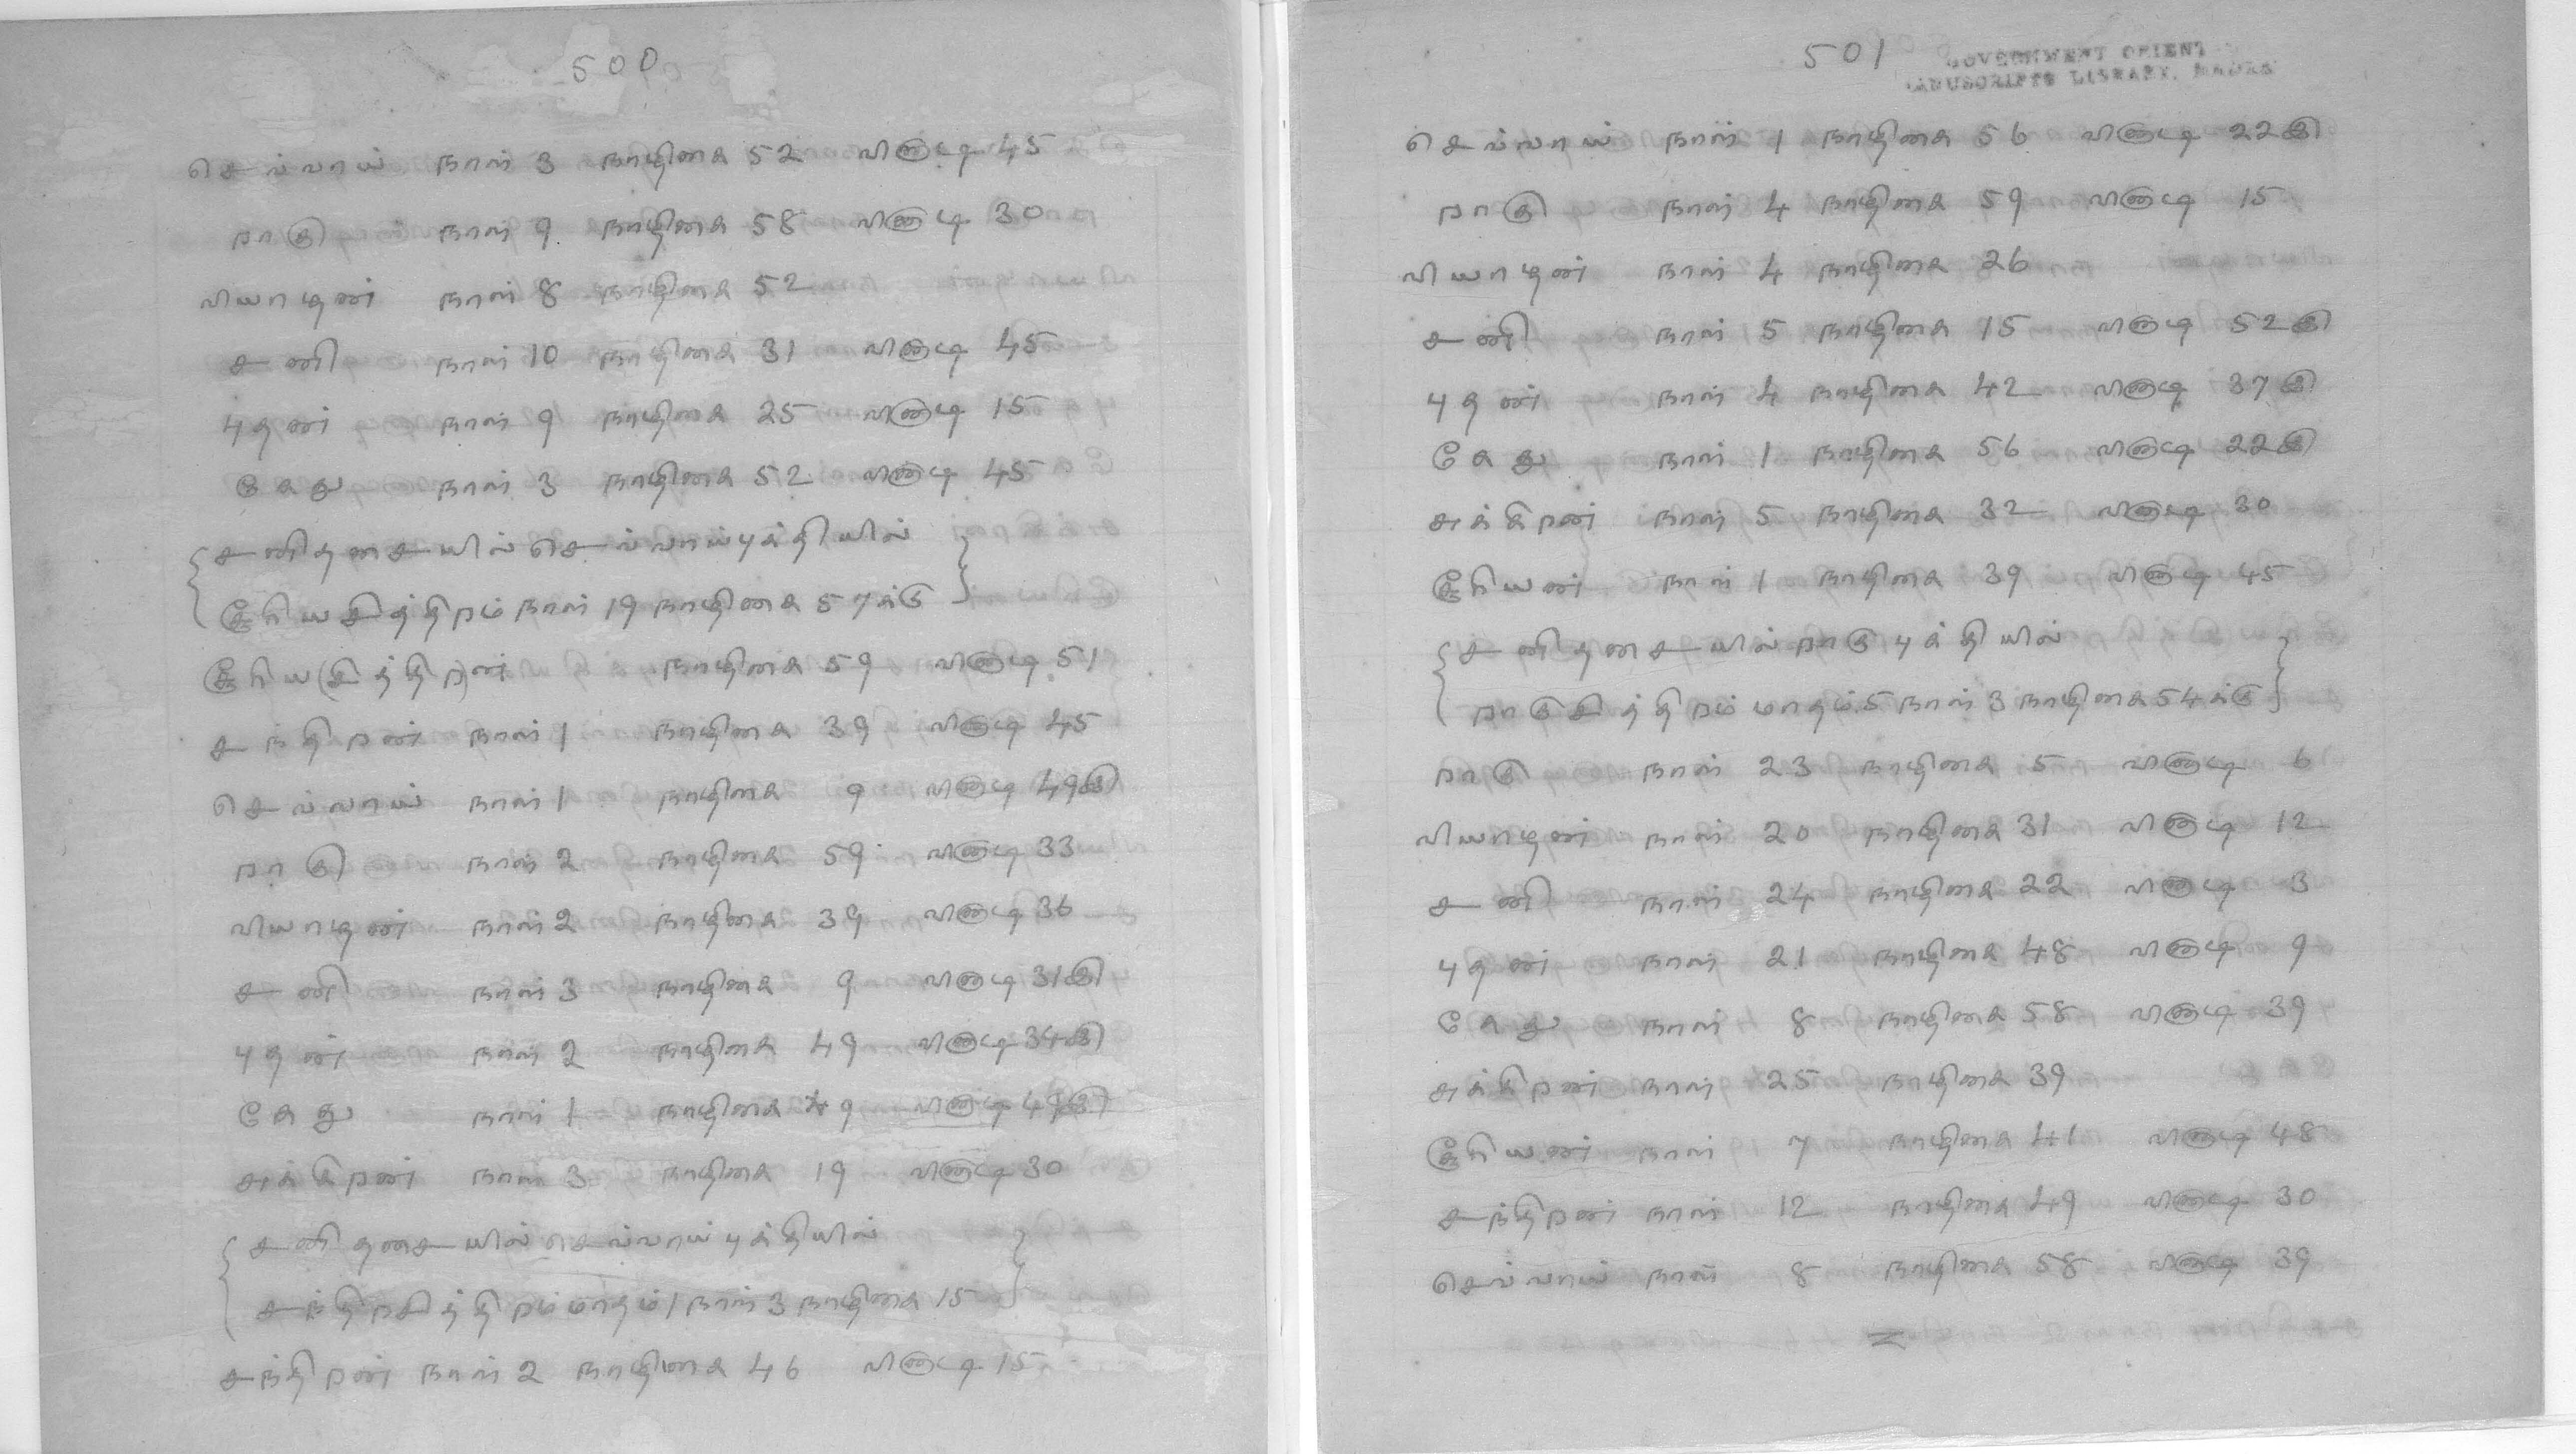 500
செவ்வாய் நாள் 3 நாழிகை 52 விநாடி 45
ராகு நாள் 9 நாழிகை 58 விநாடி 30
வியாழன் நாள் 8 நாழிகை 52
சனி நாள் 10 நாழிகை 31 விநாடி 45
புதன் நாள் 9 நாழிகை 25 விநாடி 15
கேது நாள் 3 நாழிகை 52 விநாடி 45
{சனிதசையில் செவ்வாய்புக்தியில்
சூரியசித்திரம் நாள் 19 நாழிகை 57க்கு}
சூரிய(சித்திர)ன் நாழிகை 59 விநாடி 51
சந்திரன் நாள் 1 நாழிகை 39 விநாடி 45
செவ்வாய் நாள் 1 நாழிகை 9 விநாடி 49இ
ராகு நாள் 2 நாழிகை 59 விநாடி 33
வியாழன் நாள் 2 நாழிகை 39 விநாடி 36
சனி நாள் 3 நாழிகை 9 விநாடி 31இ
புதன் நாள் 2 நாழிகை 49 விநாடி 34இ
கேது நாள் 1 நாழிகை 9 விநாடி 49இ
சுக்கிரன் நாள் 3 நாழிகை 19 விநாடி 30
{சனிதசையில் செவ்வாய்புக்தியில்
சந்திரசித்திரம் மாதம் 1 நாள் 3 நாழிகை 15}
சந்திரன் நாள் 2 நாழிகை 46 விநாடி 15
501
GOVERNMENT ORIENT
MANUSCRIPTS LIBRARY, MADRAS
செவ்வாய் நாள் 1 நாழிகை 56 விநாடி 22இ
ராகு நாள் 4 நாழிகை 59 விநாடி 15
வியாழன் நாள் 4 நாழிகை 26
சனி நாள் 5 நாழிகை 15 விநாடி 52இ
புதன் நாள் 4 நாழிகை 42 விநாடி 37இ
கேது நாள் 1 நாழிகை 56 விநாடி 22இ
சுக்கிரன் நாள் 5 நாழிகை 32 விநாடி 30
சூரியன் நாள் 1 நாழிகை 39 விநாடி 45
{சனிதசையில் ராகு புக்தியில்
ராகுசித்திரம் மாதம் 5 நாள் 3 நாழிகை 54க்கு}
ராகு நாள் 23 நாழிகை 5 விநாடி 6
வியாழன் நாள் 20 நாழிகை 31 விநாடி 12
சனி நாள் 24 நாழிகை 22 விநாடி 3
புதன் நாள் 21 நாழிகை 48 விநாடி 9
கேது நாள் 8 நாழிகை 58 விநாடி 39
சுக்கிரன் நாள் 25 நாழிகை 39
சூரியன் நாள் 7 நாழிகை 41 விநாடி 48
சந்திரன் நாள் 12 நாழிகை 49 விநாடி 30
செவ்வாய் நாள் 8 நாழிகை 58 விநாடி 39